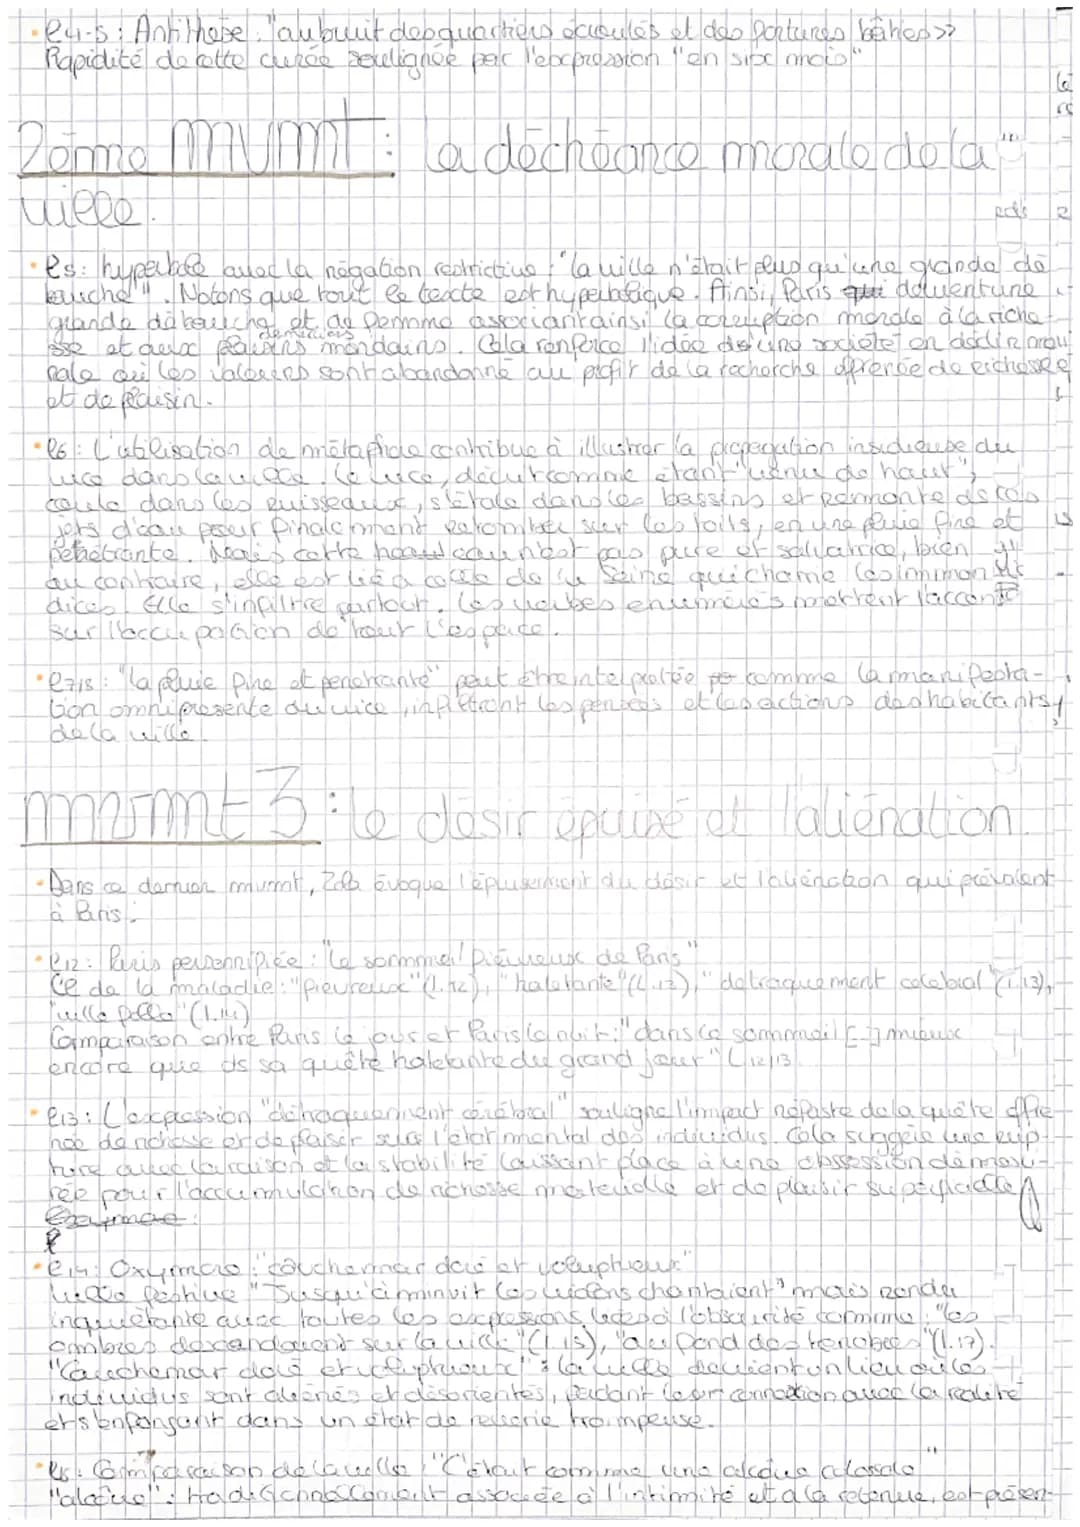 • l4-5 : Antithèse : "au bruit des quartiers écroulés et des fortunes bâties >>
Rapidité de cette curée soulignée par l'expression "en six mois"
2ème mvmt : la déchéance morale de la
ville.
• l5 : hyperbole avec la négation restrictive : "la ville n'était plus qu'une grande dé
bauche". Notons que tout le texte est hyperbolique. Ainsi, Paris devient une
grande débauche et de femme associant ainsi la corruption morale à la riche-
sse et aux plaisirs mondains. Cela renforce l'idée d'une société en déclin mo
rale où les valeurs sont abandonné au profit de la recherche effrenée de richesse
et de plaisir.
• l6 : L'utilisation de métaphore contribue à illustrer la propagation insidieuse du
vice dans la ville. Le vice, décrit comme étant "venu de haut",
coule dans les ruisseaux, s'étale dans les bassins et remonte ds les
jets d'eau pour finalement retomber sur les toits, en une pluie fine et
pénétrante. Mais cette eau n'est pas pure et salvatrice, bien
au contraire, elle est liée à celle de la Seine qui charrie les immon
dices. Elle s'infiltre partout. Les verbes enumérés mettent l'accent
sur l'occupation de tout l'espace.
• l7/8 : "la pluie fine et penetrante" peut être interprétée comme la manifesta-
tion omniprésente du vice, infiltrant les pensées et les actions des habitants
de la ville.
mvmt 3 : le désir épuisé et l'aliénation.
• Dans ce dernier mvmt, Zola évoque l'épuisement du désir et l'aliénation qui prévalent
à Paris.
• l12 : Paris personnifiée : "le sommeil fiévreux de Paris"
CL de la maladie : "fievreux" (l.12), "haletante" (l.13), "détraquement cérébral" (l.13),
"ville folle" (l.14)
Comparaison entre Paris le jour et Paris la nuit : "dans le sommeil [...] mieux
encore que ds sa quête haletante du grand jour" (l12/13
• l13 : L'expression "détraquement cérébral" souligne l'impact néfaste de la quête effre
née de richesse et de plaisir sur l'état mental des individus. Cela suggère une rup-
ture avec la raison et la stabilité laissant place à une obsession démesu-
rée pour l'accumulation de richesse matérielle et de plaisir superficielle
• l14 : Oxymore : "cauchemar doré et voluptueux"
ville festive "Jusqu'à minuit les violons chantaient" mais rendu
inquiétante avec toutes les expressions liées à l'obscurité comme : "les
ombres descendaient sur la ville" (l.15), "au fond des ténèbres" (l.17).
"Cauchemar doré et voluptueux" : la ville devient un lieu où les
individus sont aliénés et désorientés, perdant leur connection avec la réalité
et s'enfonçant dans un état de rêverie trompeuse.
• l15 : Comparaison de la ville : "C'était comme une alcôve colossale"
"alcôve" : traditionnellement associée à l'intimité et à la retenue, est présen-